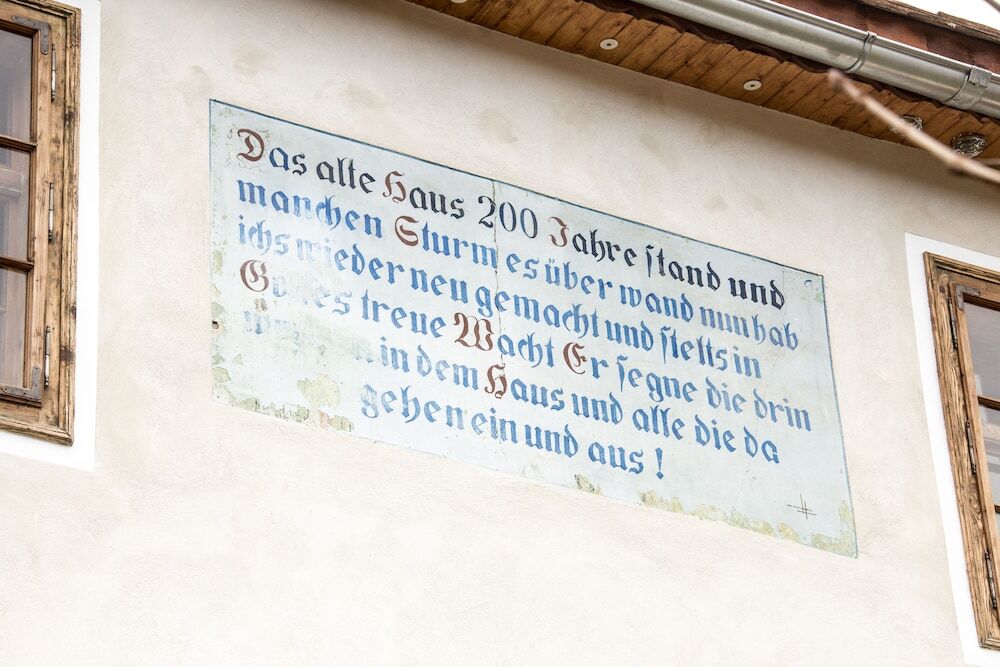 Das alte Haus 200 Jahre stand und
manchen Sturm es über wand nun hab
ichs wieder neu gemacht und stelts in
Gottes treue Wacht Er segne die drin
in dem Haus und alle die da
gehen ein und aus !